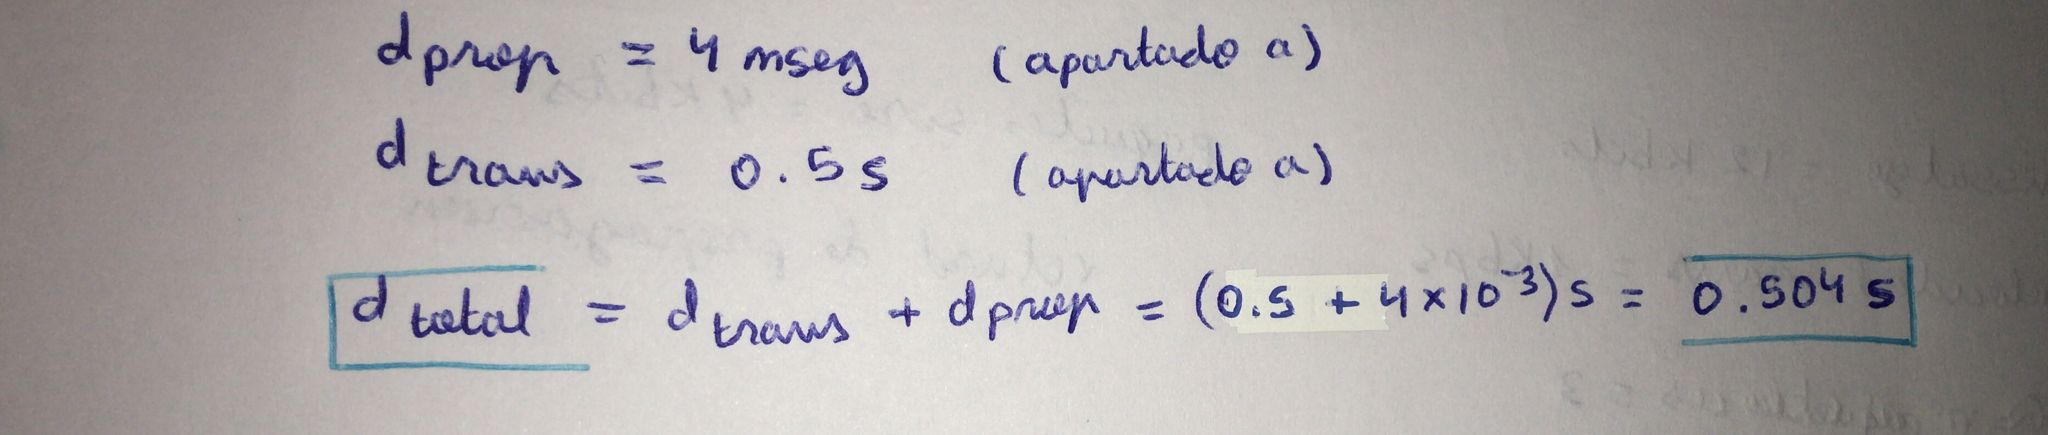 dprop = 4 mseg (apartado a)
dtrans = 0.5 s (apartado a)
dtotal = dtrans + dprop = (0.5 + 4×10⁻³) s = 0.504 s